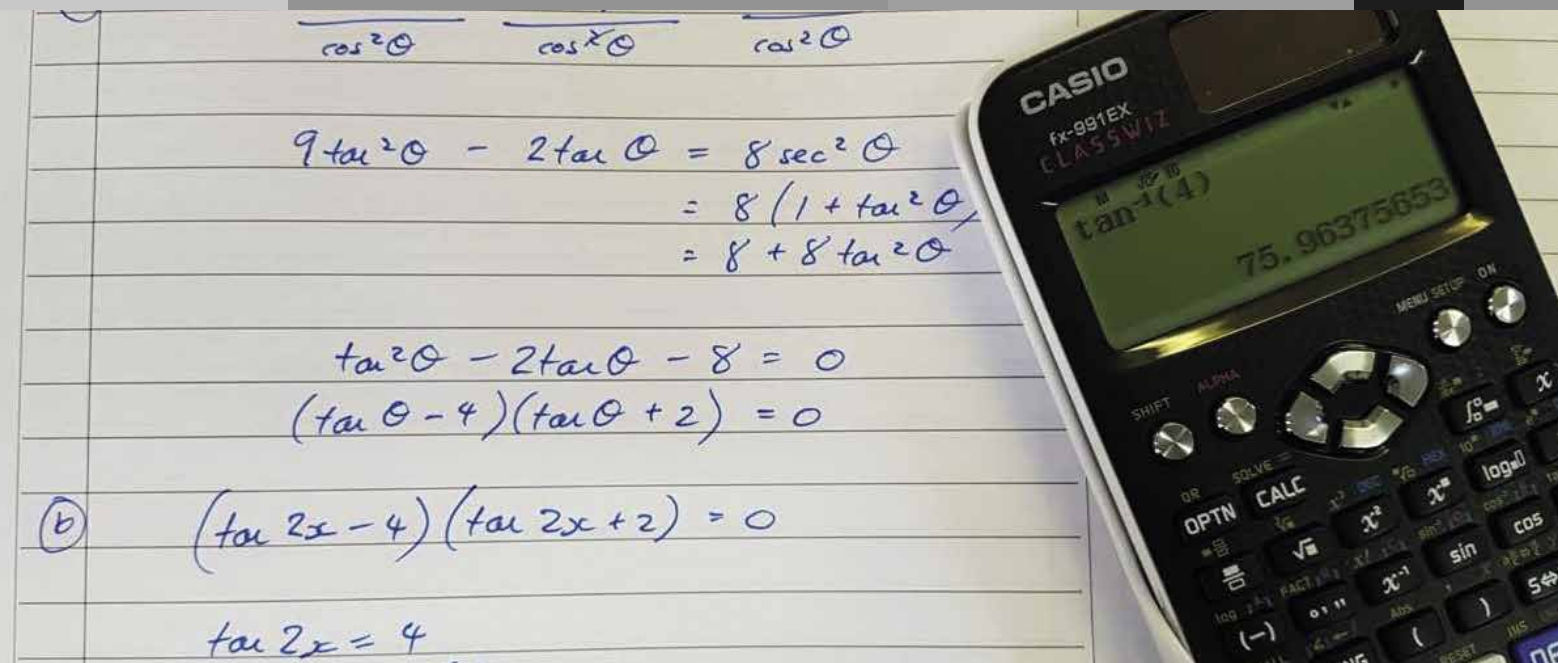 cos²θ cos²θ cos²θ
9 tan²θ - 2 tan θ = 8 sec²θ
= 8(1 + tan²θ)
= 8 + 8 tan²θ
tan²θ - 2 tan θ - 8 = 0
(tan θ - 4)(tan θ + 2) = 0
(b) (tan 2x - 4)(tan 2x + 2) = 0
tan 2x = 4
CASIO
fx-991EX
CLASSWIZ
tan⁻¹(4)
75.96375653
MENU SETUP ON
SHIFT ALPHA
SOLVE =
OPTN CALC
log
sin cos
(-)
FACT
Abs
( )